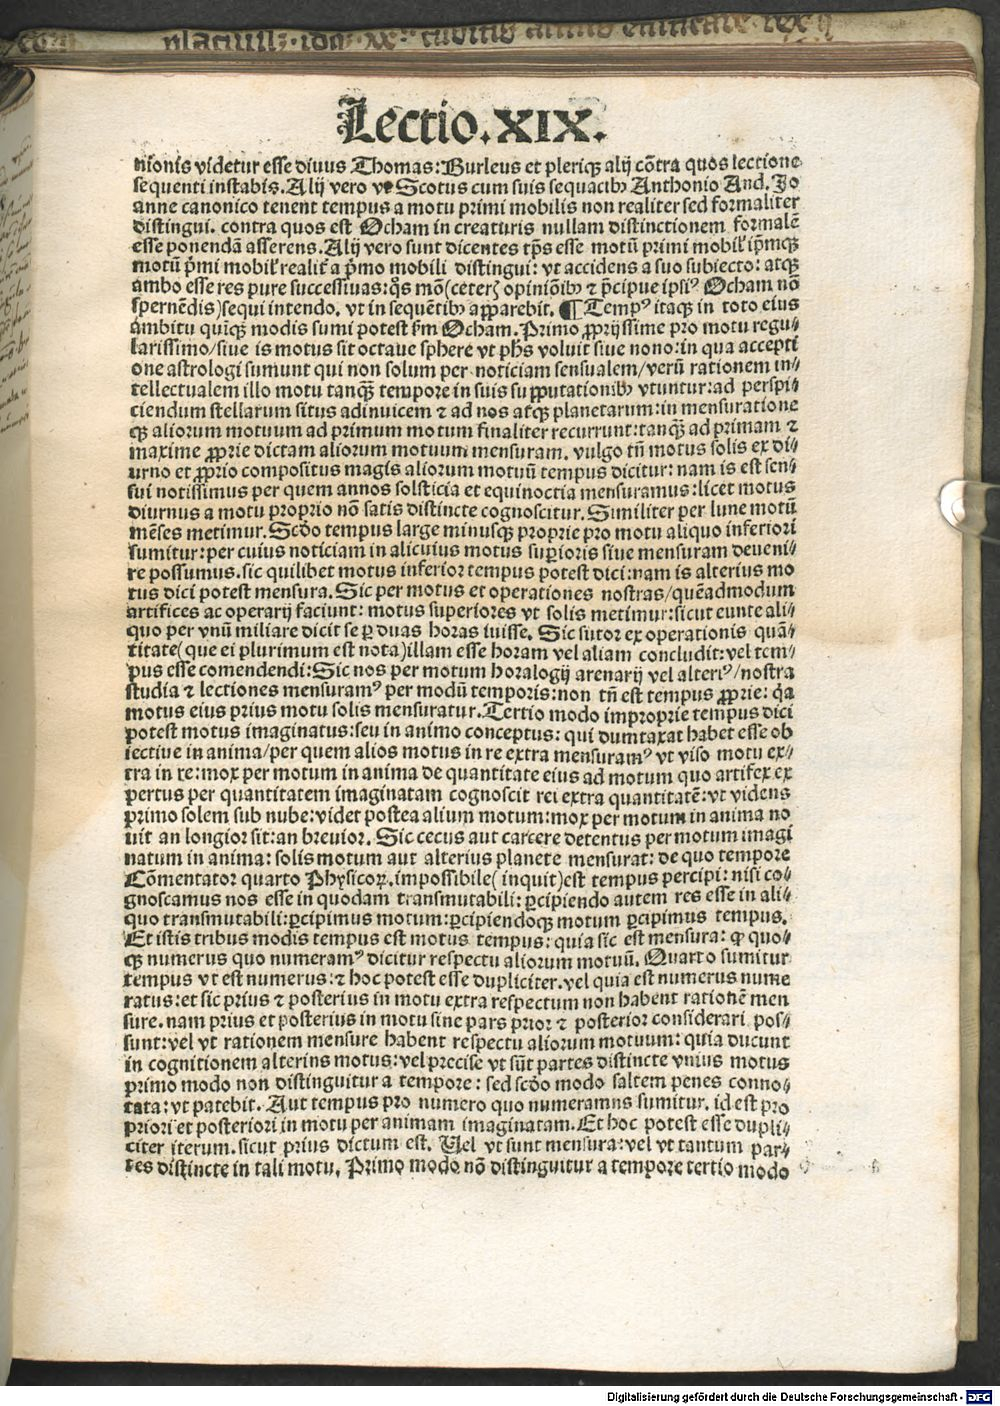 Lectio.XIX.
nionis videtur esse diuus Thomas: Burleus et pleriq̃ alij cõtra quos lectione
sequenti instabis. Alij vero vt Scotus cum suis sequacibꝫ Anthonio And. Jo
anne canonico tenent tempus a motu primi mobilis non realiter sed formaliter
distingui. contra quos est Ocham in creaturis nullam distinctionem formalẽ
esse ponendã asserens. Alij vero sunt dicentes tp̃s esse motũ primi mobil̛ ip̃mqꝫ
motũ p̃mi mobil̛ realit̛ a p̃mo mobili distingui: vt accidens a suo subiecto: atqꝫ
ambo esse res pure successiuas: q̃s mõ (ceterꝝ opiniõibꝫ ⁊ p̃cipue ipsiꝰ Ocham nõ
spernẽdis) sequi intendo. vt in sequẽtibꝫ apparebit. ¶ Tempꝰ itaqꝫ in toto eius
ambitu quinqꝫ modis sumi potest ẜm Ocham. Primo ꝓprijssime pro motu regu⸗
larissimo/siue is motus sit octaue sphere vt ph̃s voluit siue nono: in qua accepti
one astrologi sumunt qui non solum per noticiam sensualem/verũ rationem in⸗
tellectualem illo motu tanqꝫ tempore in suis supputationibꝫ vtuntur: ad perspi⸗
ciendum stellarum situs adinuicem ⁊ ad nos atqꝫ planetarum: in mensuratione
qꝫ aliorum motuum ad primum motum finaliter recurrunt: tanqꝫ ad primam ⁊
maxime ꝓprie dictam aliorum motuum mensuram. vulgo tñ motus solis ex di⸗
urno et ꝓprio compositus magis aliorum motuũ tempus dicitur: nam is est sen⸗
sui notissimus per quem annos solsticia et equinoctia mensuramus: licet motus
diurnus a motu proprio nõ satis distincte cognoscitur. Similiter per lune motũ
mẽses metimur. Scd̃o tempus large minusqꝫ proprie pro motu aliquo inferiori
sumitur: per cuius noticiam in alicuius motus suꝑioris siue mensuram deueni⸗
re possumus. sic quilibet motus inferior tempus potest dici: nam is alterius mo
tus dici potest mensura. Sic per motus et operationes nostras/quẽadmodum
artifices ac operarij faciunt: motus superiores vt solis metimur: sicut eunte ali⸗
quo per vnũ miliare dicit se ꝑ duas horas iuisse. Sic sutor ex operationis quã⸗
titate (que ei plurimum est nota) illam esse horam vel aliam concludit: vel tem⸗
pus esse comendendi: Sic nos per motum horalogij arenarij vel alteriꝰ/nostra
studia ⁊ lectiones mensuramꝰ per modũ temporis: non tñ est tempus ꝓprie: q̃a
motus eius prius motu solis mensuratur. Tertio modo improprie tempus dici
potest motus imaginatus: seu in animo conceptus: qui dumtaxat habet esse ob
iectiue in anima/per quem alios motus in re extra mensuramꝰ vt viso motu ex⸗
tra in re: mox per motum in anima de quantitate eius ad motum quo artifex ex
pertus per quantitatem imaginatam cognoscit rei extra quantitatẽ: vt videns
primo solem sub nube: videt postea alium motum: mox per motum in anima no
uit an longior sit: an breuior. Sic cecus aut carcere detentus per motum imagi
natum in anima: solis motum aut alterius planete mensurat: de quo tempore
Cõmentator quarto Physicoꝝ. impossibile (inquit) est tempus percipi: nisi co⸗
gnoscamus nos esse in quodam transmutabili: ꝑcipiendo autem res esse in ali⸗
quo transmutabili: ꝑcipimus motum: ꝑcipiendoqꝫ motum ꝑcipimus tempus.
Et istis tribus modis tempus est motus tempus: quia sic est mensura: ꝙ quo⸗
qꝫ numerus quo numeramꝰ dicitur respectu aliorum motuũ. Quarto sumitur
tempus vt est numerus: ⁊ hoc potest esse dupliciter. vel quia est numerus nume
ratus: et sic prius ⁊ posterius in motu extra respectum non habent rationẽ men
sure. nam prius et posterius in motu siue pars prior ⁊ posterior considerari pos⸗
sunt: vel vt rationem mensure habent respectu aliorum motuum: quia ducunt
in cognitionem alterius motus: vel precise vt sũt partes distincte vnius motus
primo modo non distinguitur a tempore: sed scd̃o modo saltem penes conno⸗
tata: vt patebit. Aut tempus pro numero quo numeramus sumitur. id est pro
priori et posteriori in motu per animam imaginatam. Et hoc potest esse dupli⸗
citer iterum. sicut prius dictum est. Vel vt sunt mensura: vel vt tantum par⸗
tes distincte in tali motu. Primo modo nõ distinguitur a tempore tertio modo
Digitalisierung gefördert durch die Deutsche Forschungsgemeinschaft - DFG